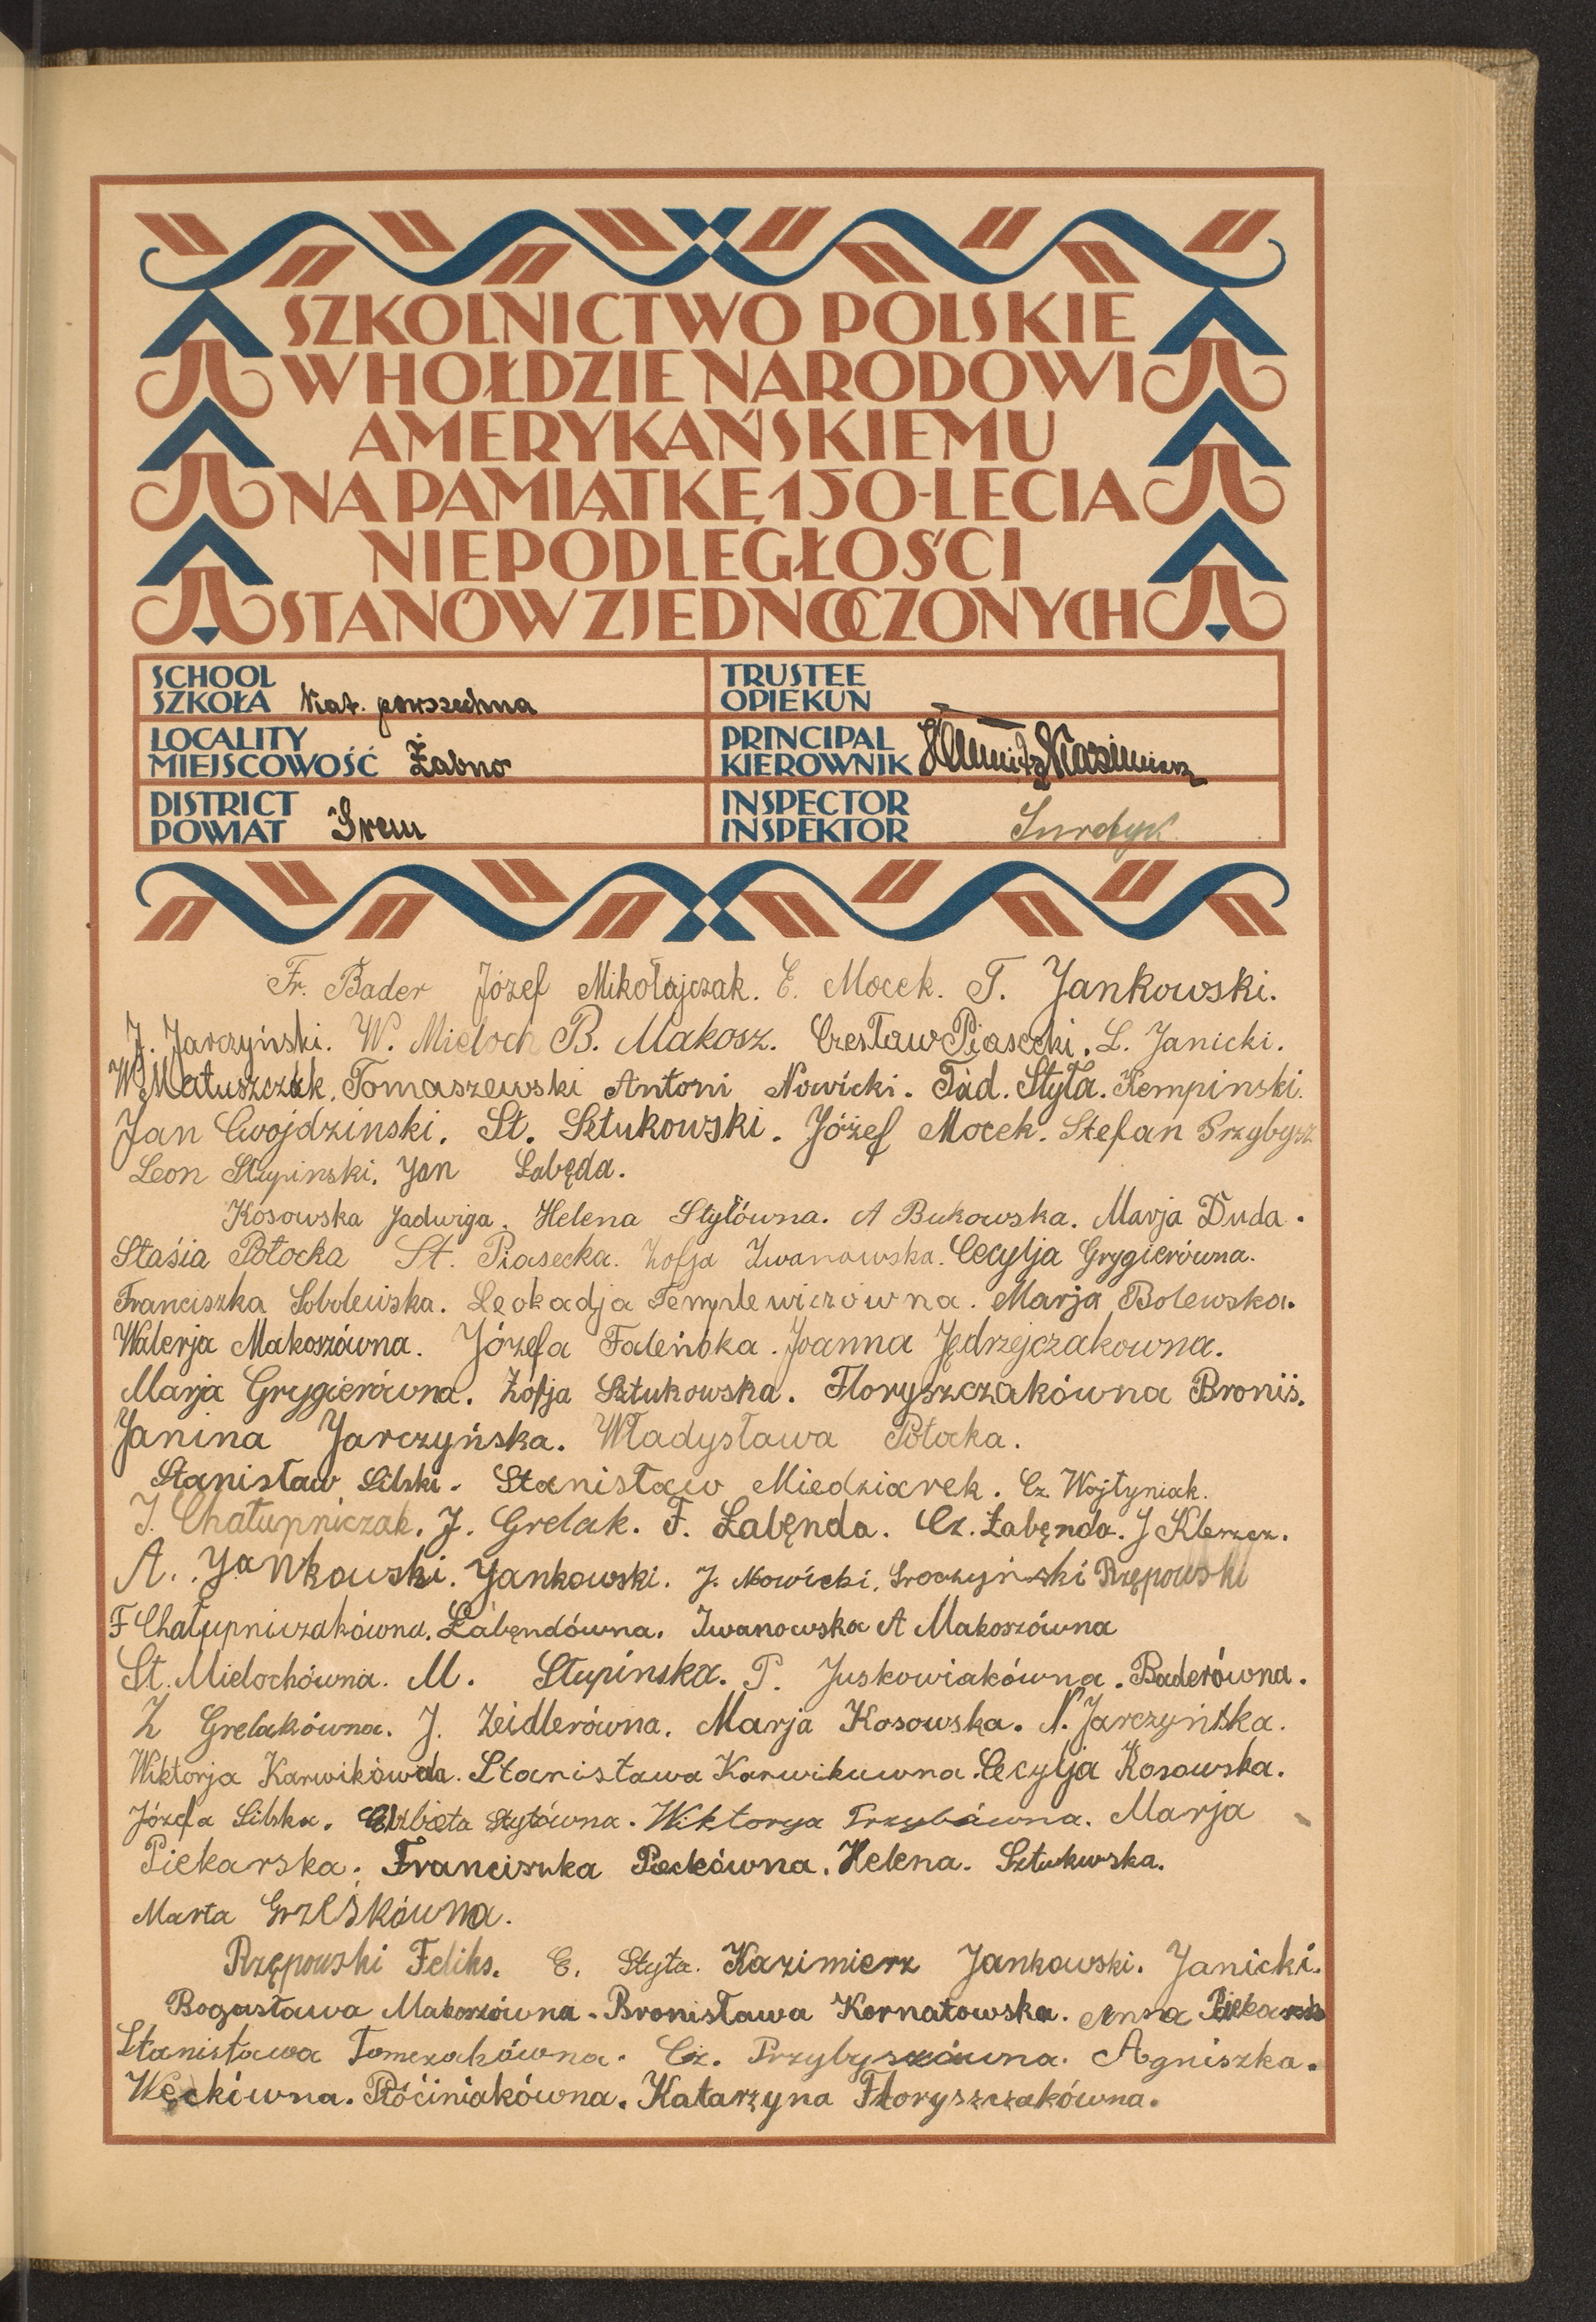 SZKOLNICTWO POLSKIE
W HOŁDZIE NARODOWI
AMERYKAŃSKIEMU
NA PAMIĄTKĘ 150-LECIA
NIEPODLEGŁOŚCI
STANÓW ZJEDNOCZONYCH
SCHOOL
SZKOŁA Kat. powszechna
TRUSTEE
OPIEKUN
LOCALITY
MIEJSCOWOŚĆ Żabno
PRINCIPAL
KIEROWNIK Kazimierz
DISTRICT
POWIAT Śrem
INSPECTOR
INSPEKTOR Surdyk
Fr. Bader Józef Mikołajczak. E. Mocek. T. Jankowski.
J. Jarczyński. W. Mieloch B. Makosz. Czesław Piasecki. L. Janicki.
W. Matuszczak. Tomaszewski Antoni Nowicki. Tad. Styła. Kempinski.
Jan Gwojdzinski. St. Sztukowski. Józef Mocek. Stefan Przybysz
Leon Słupinski. Jan Łabęda.
Kosowska Jadwiga. Helena Styłówna. A Bukowska. Marja Duda.
Stasia Potocka St. Piasecka. Zofja Iwanowska. Cecylja Grygierówna.
Franciszka Sobolewska. Leokadja Templewiczówna. Marja Bolewska.
Walerja Makoszówna. Józefa Faleńska. Joanna Jędrzejczakowna.
Marja Grygierówna. Zofja Sztukowska. Floryszczakówna Bronis.
Janina Jarczyńska. Władysława Potocka.
Stanisław Silski. Stanisław Miedziarek. Cz. Wojtyniak.
J. Chałupniczak. J. Grelak. F. Łabęnda. Cz. Łabęnda. J
A. Jankowski. Jankowski. J. Nowicki. Sroczyński Rzępowski
F Chałupniczakówna. Łabęndówna. Iwanowska A Makoszówna
St. Mielochówna. M. Słupinska. P. Juskowiakówna. Baderówna.
Z Grelakówna. J. Zeidlerówna. Marja Kosowska. N. Jarczyńska.
Wiktorja Karwikówna. Stanisława Karwikuwna. Cecylja Kosowska.
Józefa Silska. Elzbieta Stytówna. Wiktorya Przybówna. Marja
Piekarska. Franciszka Peckówna. Helena. Sztukwska.
Marta Grześkówna.
Rzępowski Feliks. E. Styła. Kazimierz Jankowski. Janicki.
Bogusława Makoszówna. Bronisława Kornatowska. Anna Piekarsk
Stanisława Tomczakówna. Cz. Przybyszówna. Agniszka.
Węckówna. Płóciniakówna. Katarzyna Floryszczakówna.